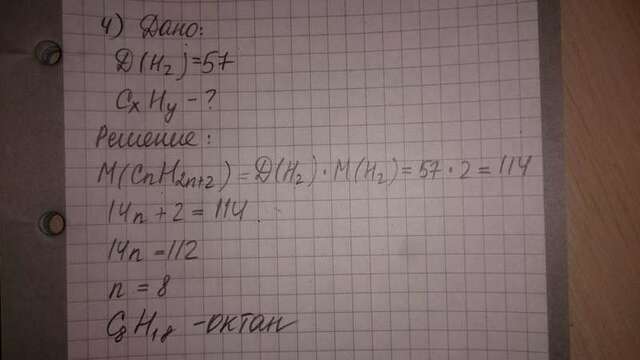 4) Дано:
D(H₂)=57
CxHy - ?
Решение:
M(CnH2n+2) = D(H₂) · M(H₂) = 57 · 2 = 114
14n + 2 = 114
14n = 112
n = 8
C₈H₁₈ - октан